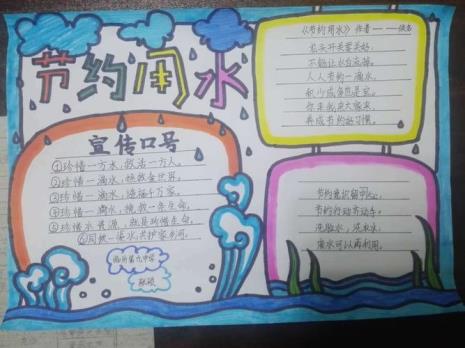 节约用水
宣传口号
①珍惜一方水,救活一方人。
②珍惜一滴水,
③珍惜一滴水,造福千万家。
④珍惜一滴水,拯救一条生命。
⑤珍惜水资源,就是珍惜生命。
⑥同救一方水,共护家乡河。
临沂第九中学
《节约用水》作者——佚名
龙头开关要关好,
不能让水白流掉。
人人节约一滴水,
积少成多就是宝。
你来我来大家来,
养成节约好习惯。
节约意识留心上,
节约行动齐动手。
洗脸水,洗衣水,
废水可以再利用。